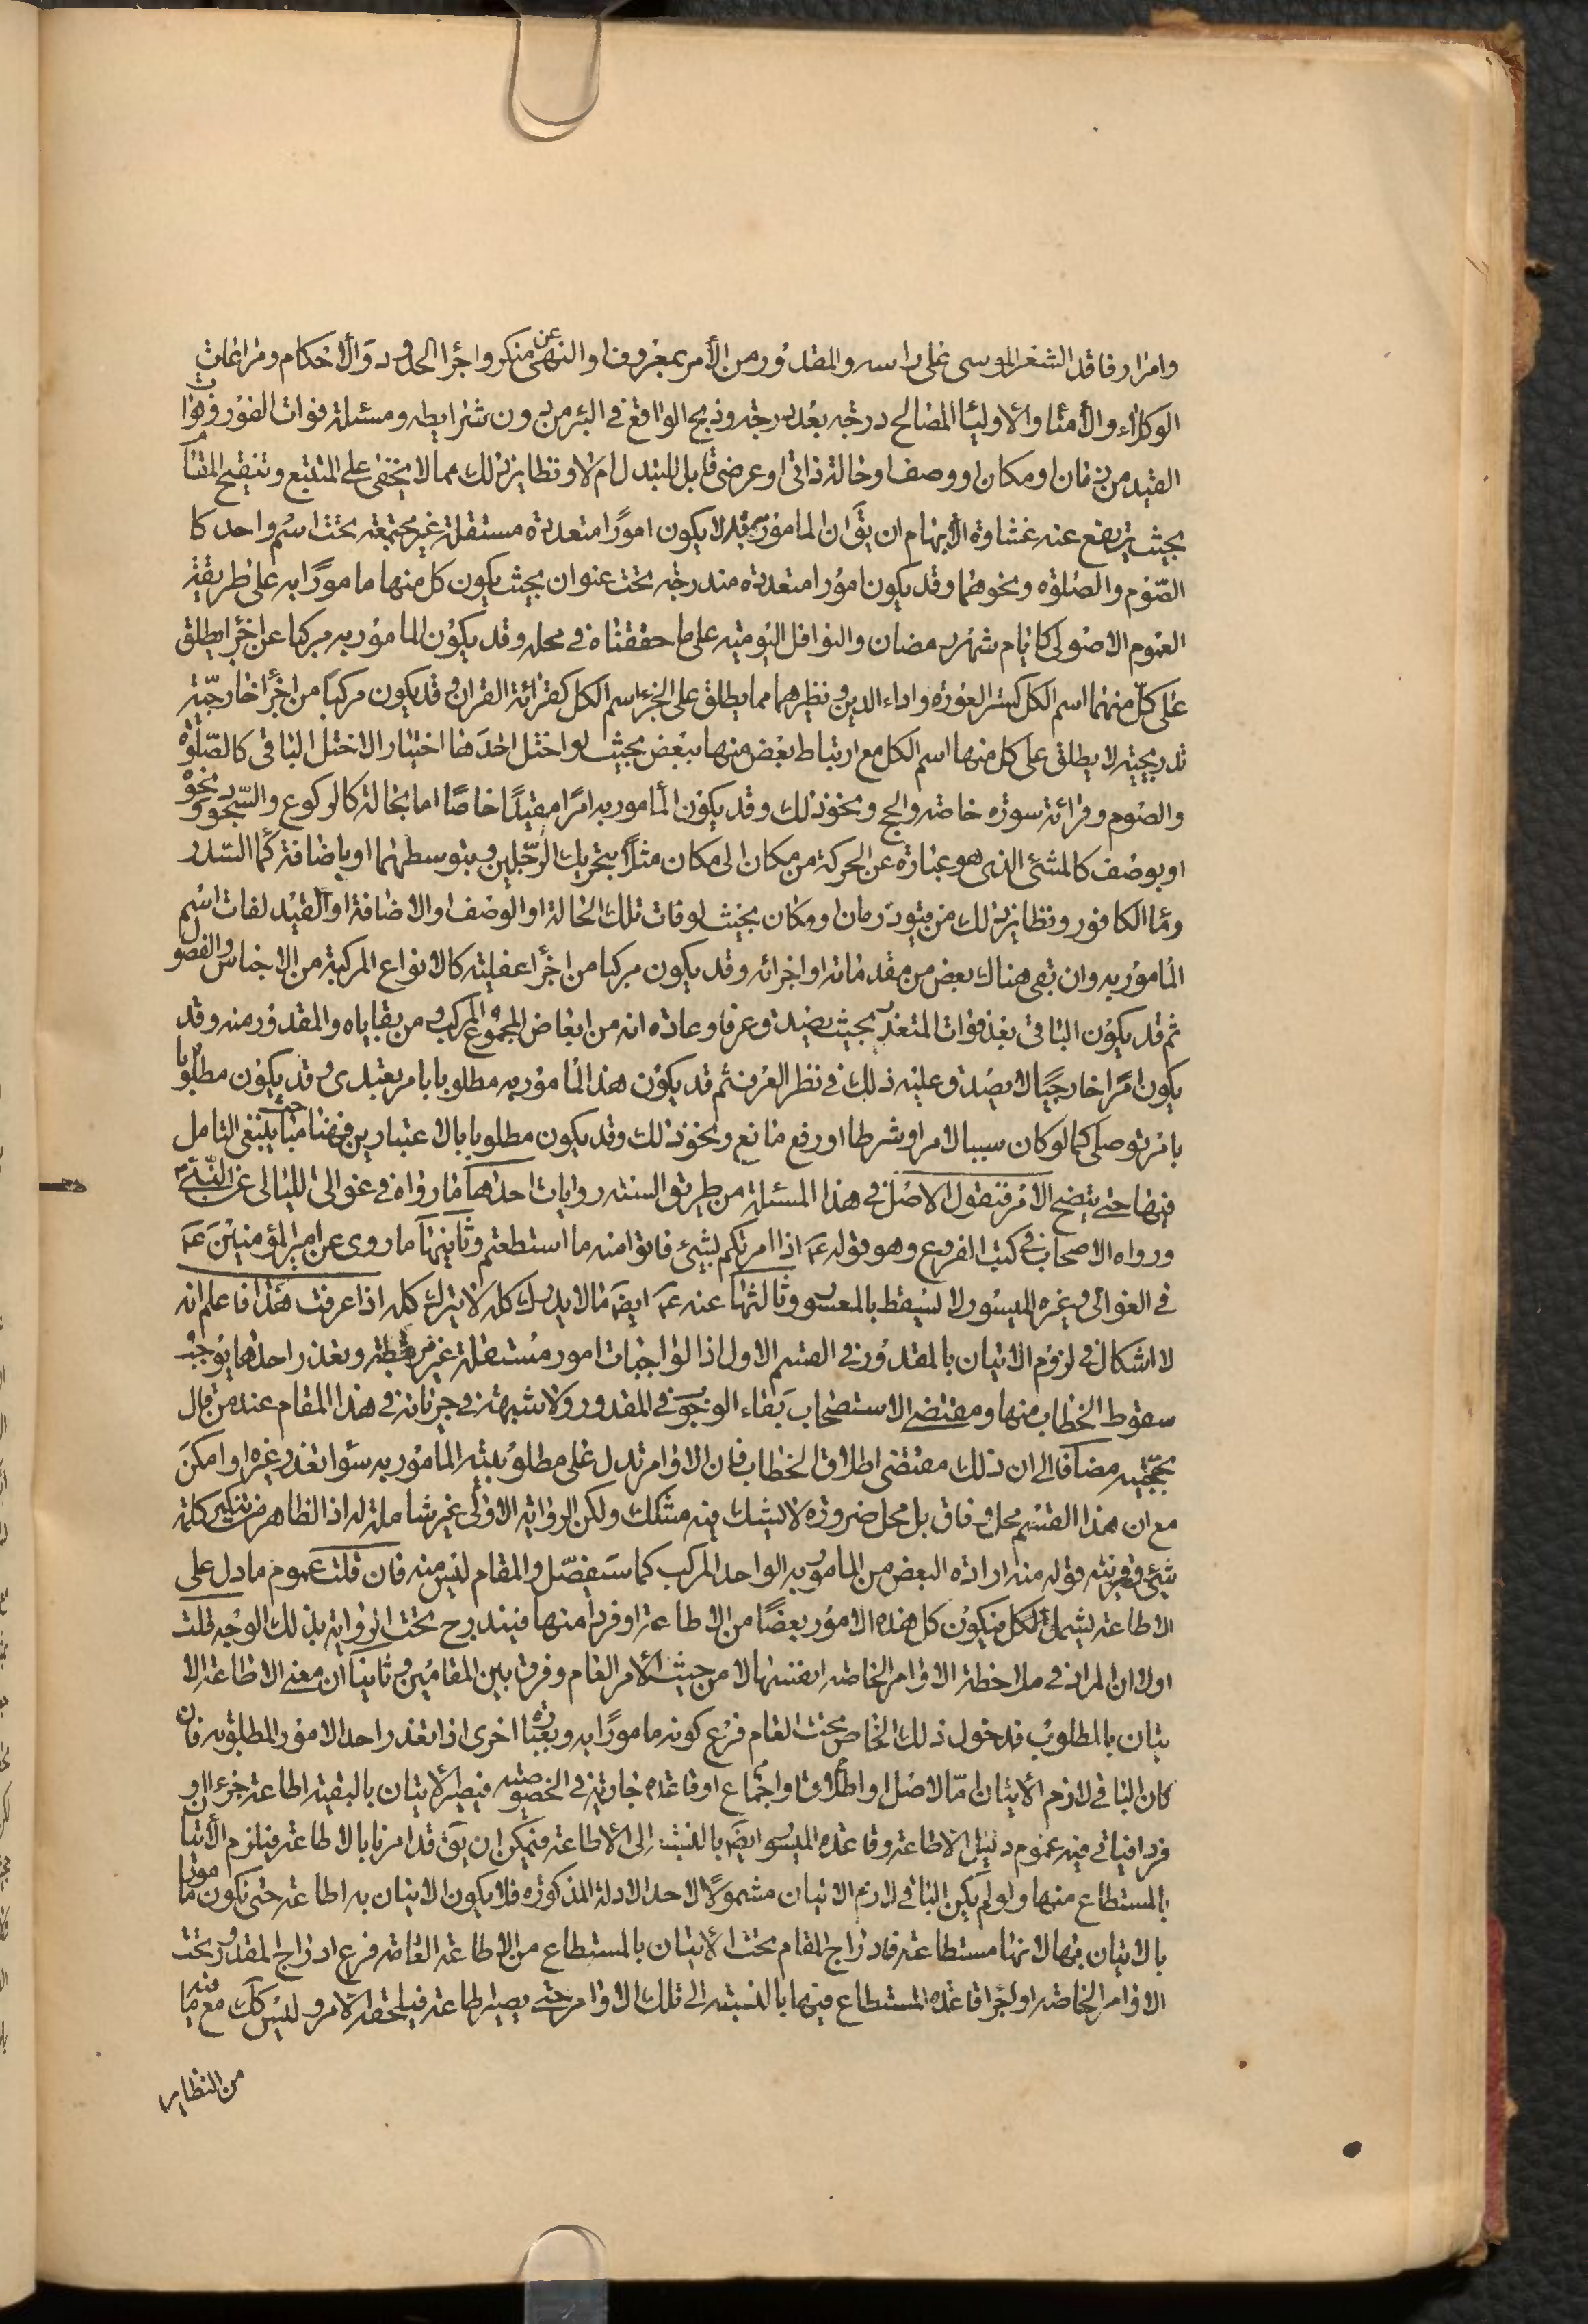 وامرار فاقد الشعر الموسى على راسه والمقدور من الأمر بمعروف او النهى عن منكر واجرا الحدود والأحكام ومراعات
الوكلاء والأمنا والاوليا المصالح درجه بعد درجه وذبح الواقع في البئر من دون شرايطه ومسئلة فوات الفور وفوات
القيد من زمان او مكان او وصف او حالة ذاتى او عرضى قابل للتبدل ام لا ونظاير ذلك مما لا يخفى على المتتبع وتنقيح المقام
بحيث يرتفع عنه غشاوة الأبهام ان يقَ ان المامور به قد لا يكون امورًا متعددة مستقلة غير مجتمعة تحت اسم واحد كا
الصّوم والصلوة ونحوهما وقد يكون امورا متعددة مندرجة تحت عنوان بحيث يكون كل منها مامورًا به على طريقة
العموم الاصولى كايام شهر رمضان والنوافل اليومية على ما حققناه في محله وقد يكون المامور به مركبا عن اجزا يطلق
على كلّ منهما اسم الكل كستر العورة واداء الدين ونظيرهما مما يطلق على الجزء اسم الكل كقرائة القران وقد يكون مركبًا من اجزا خارجيّة
تدريجية لا يطلق على كل منها اسم الكل مع ارتباط بعض منها ببعض بحيث لو اختل احدَها اختيارا لاختل الباقى كالصّلوة
والصوم وقرائة سورة خاصة والحج ونحو ذلك وقد يكون المأمور به امرًا مقيدًا خاصًا اما بحالة كالركوع والسّجود ونحوه
او بوصف كالمشئ الذى هو عبارة عن الحركة من مكان الى مكان مثلاً بتحريك الرّجلين وبتوسطهما او باضافة كمَا السّدر
ومَا الكافور ونظاير ذلك من قيود زمان او مكان بحيث لو فات تلك الحالة او الوصف او الاضافة او القيد لفات اسم
المامور به وان بقى هناك بعض من مقدماته او اجزائه وقد يكون مركبا من اجزأ عقلية كالانواع المركبة من الاجناس والفصول
ثم قد يكون الباقى بعد فوات المتعذر بحيث يصدق عرفا وعادة انه من ابعاض المجموع المركب ومن بقاياه والمقدور منه وقد
يكون امرًا خارجيًا لا يصدق عليه ذلك في نظر العرف ثم قد يكون هذا المامور به مطلوبا بامر تعبدى وقد يكون مطلوبا
بامر توصلى كما لو كان سببا لامر او شرطا او رفع مانع ونحو ذلك وقد يكون مطلوبا بالاعتبارين فهنا مباحث ينبغى التامل
فيها حتى يتضح الامر فنقول الاصل في هذا المسئلة من طريق السنة روايات احدَهما ما رواه في غوالى الليالى عن النّبىّ
ورواه الاصحاب في كتب الفروع وهو قوله عَم اذا امرتكم بشيئ فاتوا منه ما استطعتم وثانيها ما روى عن امير المؤمنين عَم
في الغوالى وغيره الميسور لا يسقط بالمعسور وثالثها عنه عَم ايضَ ما لا يدرك كله لا يترك كله اذا عرفت هذا فاعلم انه
لا اشكال في لزوم الاتيان بالمقدور في القسم الاول اذا لواجبات امور مستقلة غير مرتبطة وتعذر احدها يوجب
سقوط الخطاب منها ومقتضى الاستصحاب بَقاء الوجوب في المقدور ولا شبهة في جريانه في هذا المقام عند من قال
بحجّيته مضافا الى ان ذلك مقتضى اطلاق الخطاب فان الاوامر تدل على مطلوبية المأمور به سوا تعذر غيره او امكنَ
مع ان هذا القسم محل وفاق بل محل ضرورة لا يشك فيه مشكك ولكن الرواية الاولى غير شاملة له اذ الظاهر من تنكير كلمة
شيئ وقرينة قوله منه ارادة البعض من المامور به الواحد المركب كما سَيفصّل والمقام ليس منه فان قلت عموم ما دل على
الاطاعة يشمل الكل فيكون كل هذه الامور بعضًا من الاطاعة او فردا منها فيندرج تحت الرواية بذلك الوجه قلت
اولا ان المراد في ملاحظة الاوامر الخاصة انفسها لا من حيث الأمر العام وفرق بين المقامين وثانيًا ان معنى الاطاعة الا
تيان بالمطلوب فدخول ذلك الخاص تحت العام فرع كونه مامورًا به وبعبارة اخرى اذا تعذر احد الامور المطلوبه فان
كان الباقى لازم الأتيان امّا لاصل او اطلاق او اجماع او قاعدة جارية في الخصوصية فيصير الاتيان بالبقية اطاعة جزءا او
فردا فياتى فيه عموم دليل الاطاعة وقاعدة الميسور ايضَ بالنسبة الى الأطاعة فيمكن ان يقَ قد امرنا بالاطاعة فيلزم الأتيان
بالمستطاع منها ولو لم يكن الباقى لازم الاتيان مشمولًا لاحد الادلة المذكورة فلا يكون الاتيان به اطاعة حتى نكون مامورا
بالاتيان بها لانها مستطاعة فادراج المقام تحت الأتيان بالمستطاع من الاطاعة العامة فرع ادراج المقدور تحت
الاوامر الخاصة او اجرا قاعدة المستطاع فيها بالنسبة الى تلك الاوامر حتى يصير اطاعة فيلحقه الامر وليس كك مع ما فيه
من النظاير